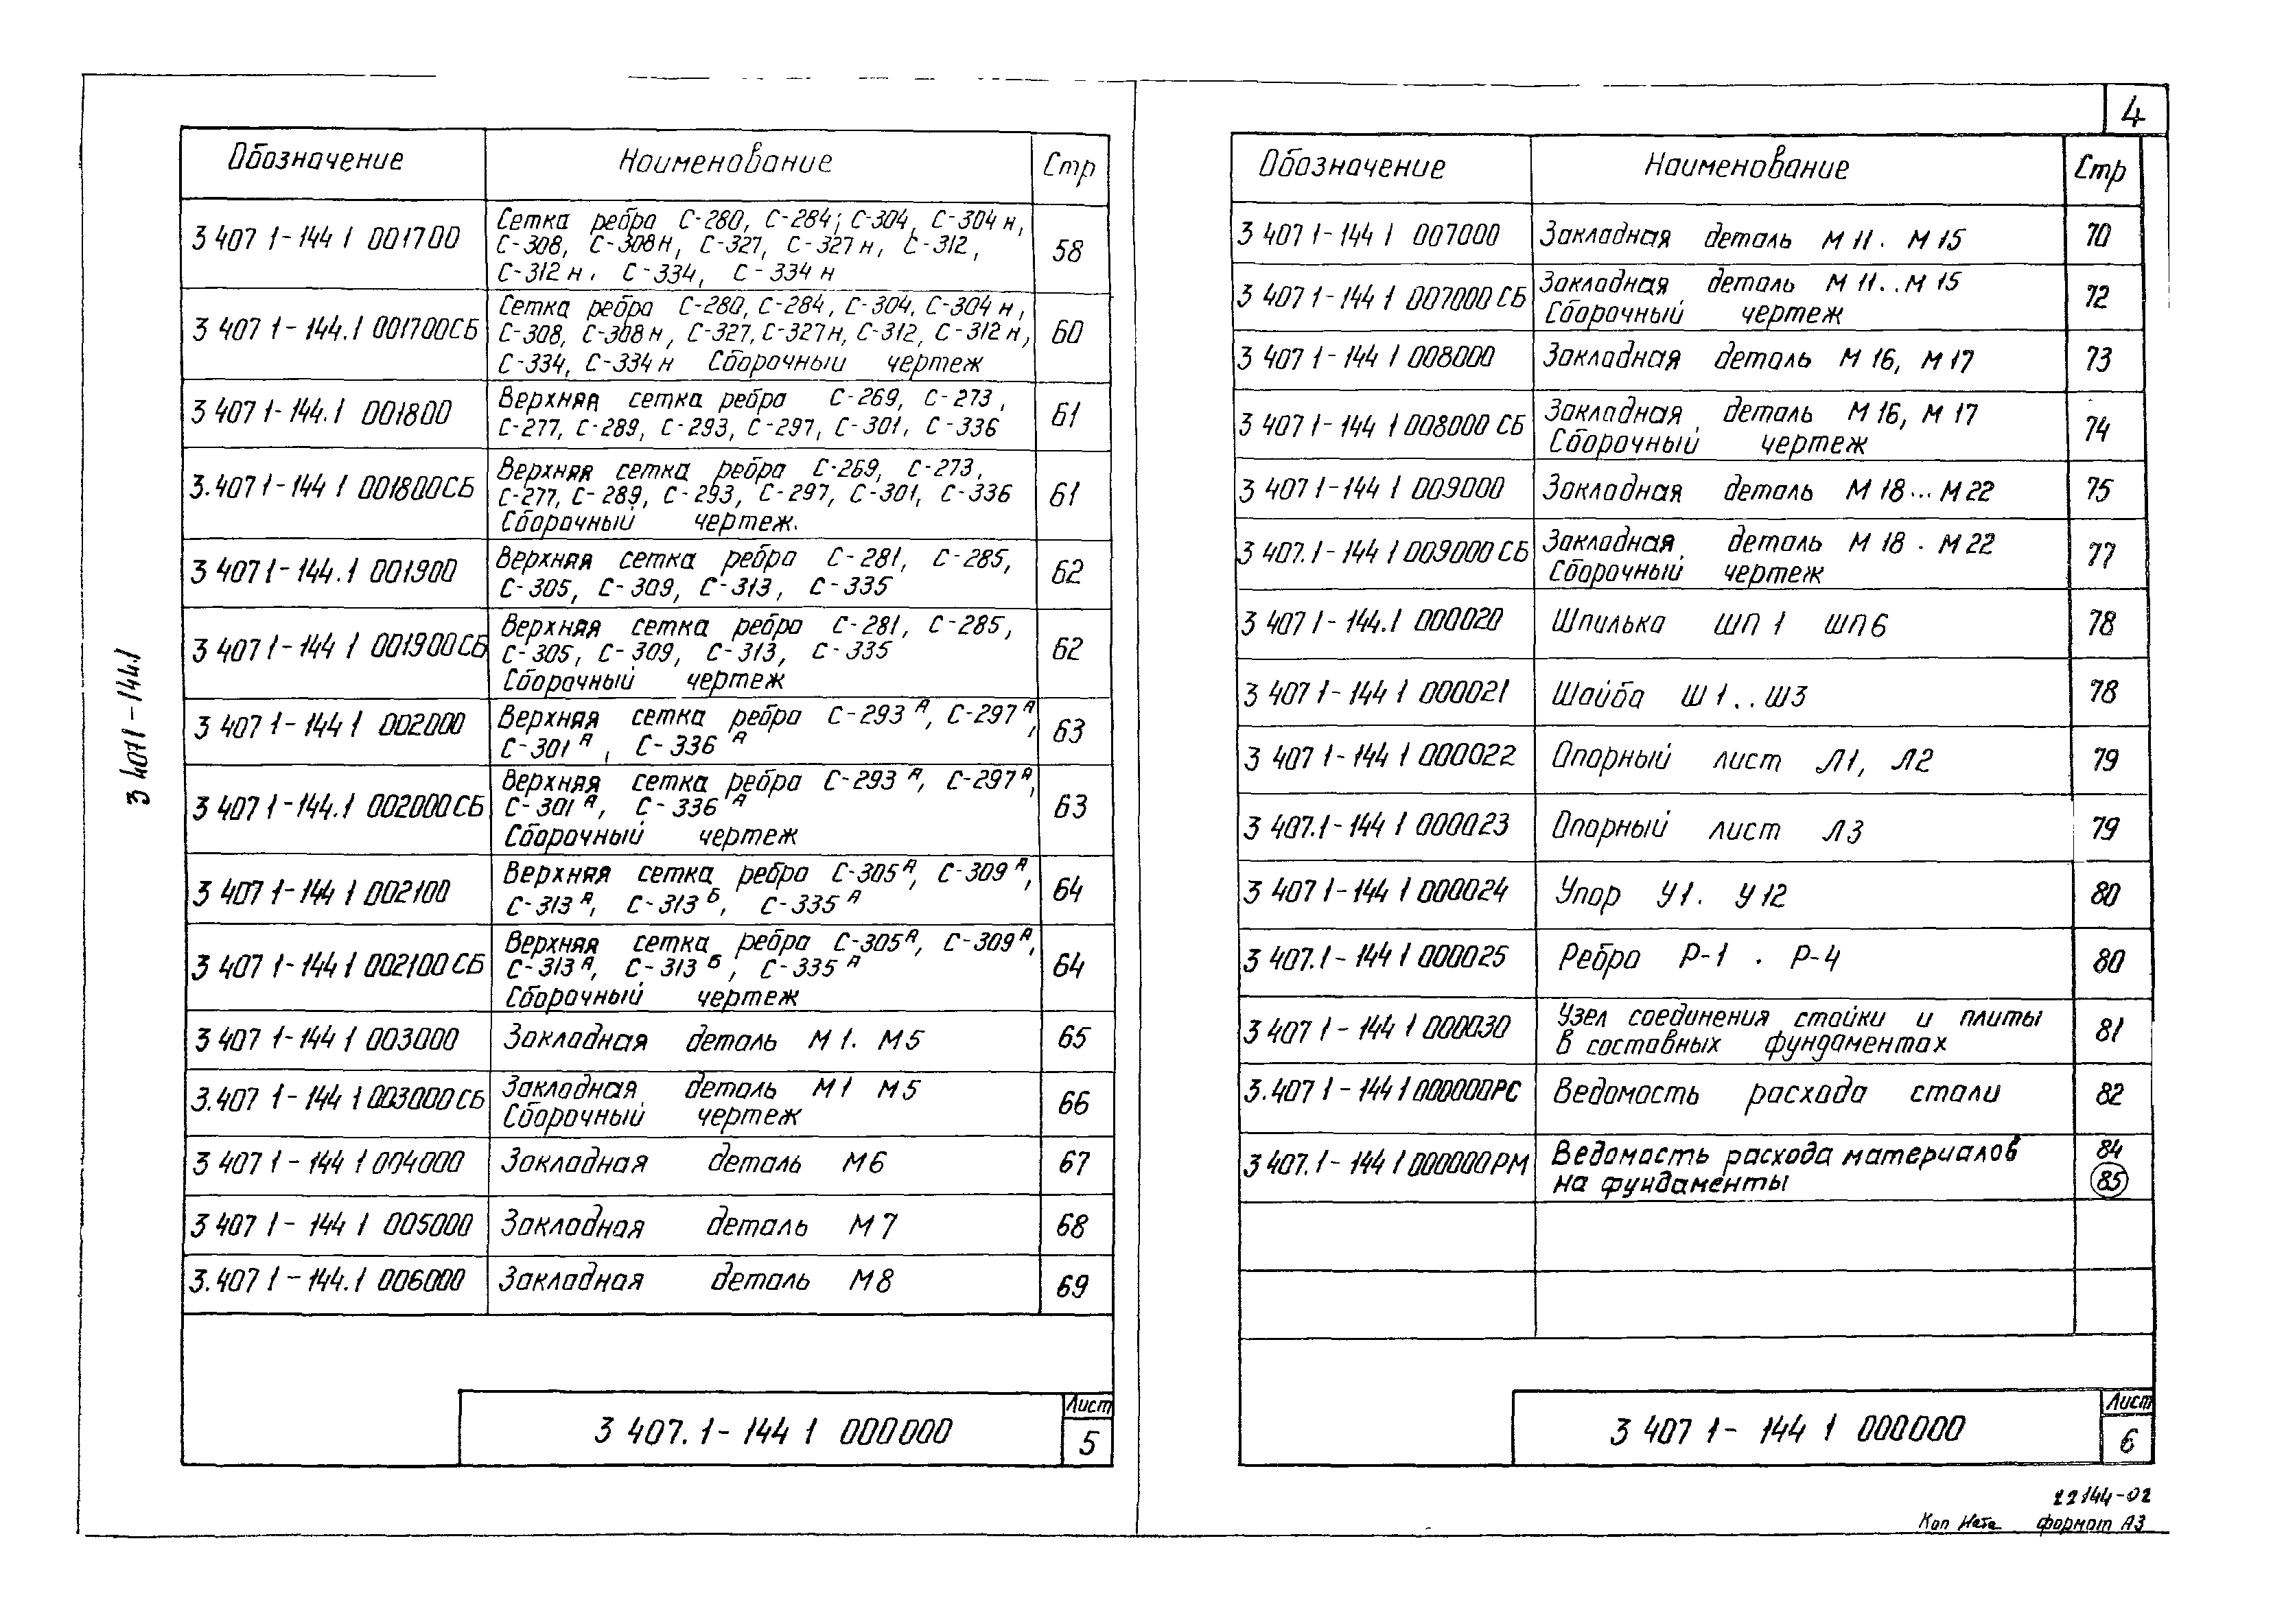 4
3 4071-144.1
Обозначение Наименование Стр
3 407 1-144 1 001700 Сетка ребра С-280, С-284; С-304, С-304н,
С-308, С-308н, С-327, С-327н, С-312, 58
С-312н, С-334, С-334н
3 407 1-144.1 001700СБ Сетка ребра С-280, С-284, С-304, С-304н,
С-308, С-308н, С-327, С-327н, С-312, С-312н, 60
С-334, С-334н Сборочный чертеж
3 407 1-144.1 001800 Верхняя сетка ребра С-269, С-273, 61
С-277, С-289, С-293, С-297, С-301, С-336
3.407 1-144 1 001800СБ Верхняя сетка ребра С-269, С-273,
С-277, С-289, С-293, С-297, С-301, С-336 61
Сборочный чертеж.
3 407 1-144.1 001900 Верхняя сетка ребра С-281, С-285, 62
С-305, С-309, С-313, С-335
3 407 1-144 1 001900СБ Верхняя сетка ребра С-281, С-285,
С-305, С-309, С-313, С-335 62
Сборочный чертеж
3 407 1-144 1 002000 Верхняя сетка ребра С-293 А, С-297 А, 63
С-301 А, С-336 А
3 407 1-144.1 002000СБ Верхняя сетка ребра С-293 А, С-297 А,
С-301 А, С-336 А 63
Сборочный чертеж
3 407 1-144 1 002100 Верхняя сетка ребра С-305 А, С-309 А, 64
С-313 А, С-313 Б, С-335 А
3 407 1-144 1 002100СБ Верхняя сетка ребра С-305 А, С-309 А,
С-313 А, С-313 Б, С-335 А 64
Сборочный чертеж
3 407 1-144 1 003000 Закладная деталь М 1. М5 65
3.407 1-144 1 003000СБ Закладная деталь М1 М5 66
Сборочный чертеж
3 407 1-144 1 004000 Закладная деталь М6 67
3 407 1-144 1 005000 Закладная деталь М7 68
3.407 1-144.1 006000 Закладная деталь М8 69
3 407. 1-144 1 000000 Лист
5
Обозначение Наименование Стр
3 407 1-144 1 007000 Закладная деталь М 11. М 15 70
3 407 1-144 1 007000СБ Закладная деталь М 11..М 15 72
Сборочный чертеж
3 407 1-144 1 008000 Закладная деталь М 16, М 17 73
3 407 1-144 1 008000 СБ Закладная деталь М 16, М 17 74
Сборочный чертеж
3 407 1-144 1 009000 Закладная деталь М 18...М 22 75
3 407. 1-144 1 009000 СБ Закладная деталь М 18 . М 22 77
Сборочный чертеж
3 407 1-144.1 000020 Шпилька ШП 1 ШП6 78
3 407 1-144 1 000021 Шайба Ш 1..Ш3 78
3 407 1-144 1 000022 Опорный лист Л1, Л2 79
3 407.1-144 1 000023 Опорный лист Л3 79
3 407 1-144 1 000024 Упор У1. У12 80
3 407.1-144 1 000025 Ребро Р-1 . Р-4 80
3 407 1-144 1 000030 Узел соединения стойки и плиты 81
в составных фундаментах
3.407 1-144 1 000000РС Ведомость расхода стали 82
3 407.1-144 1 000000РМ Ведомость расхода материалов 84
на фундаменты 85
3 407 1-144 1 000000 Лист
6
22144-02
Коп Ната формат А3